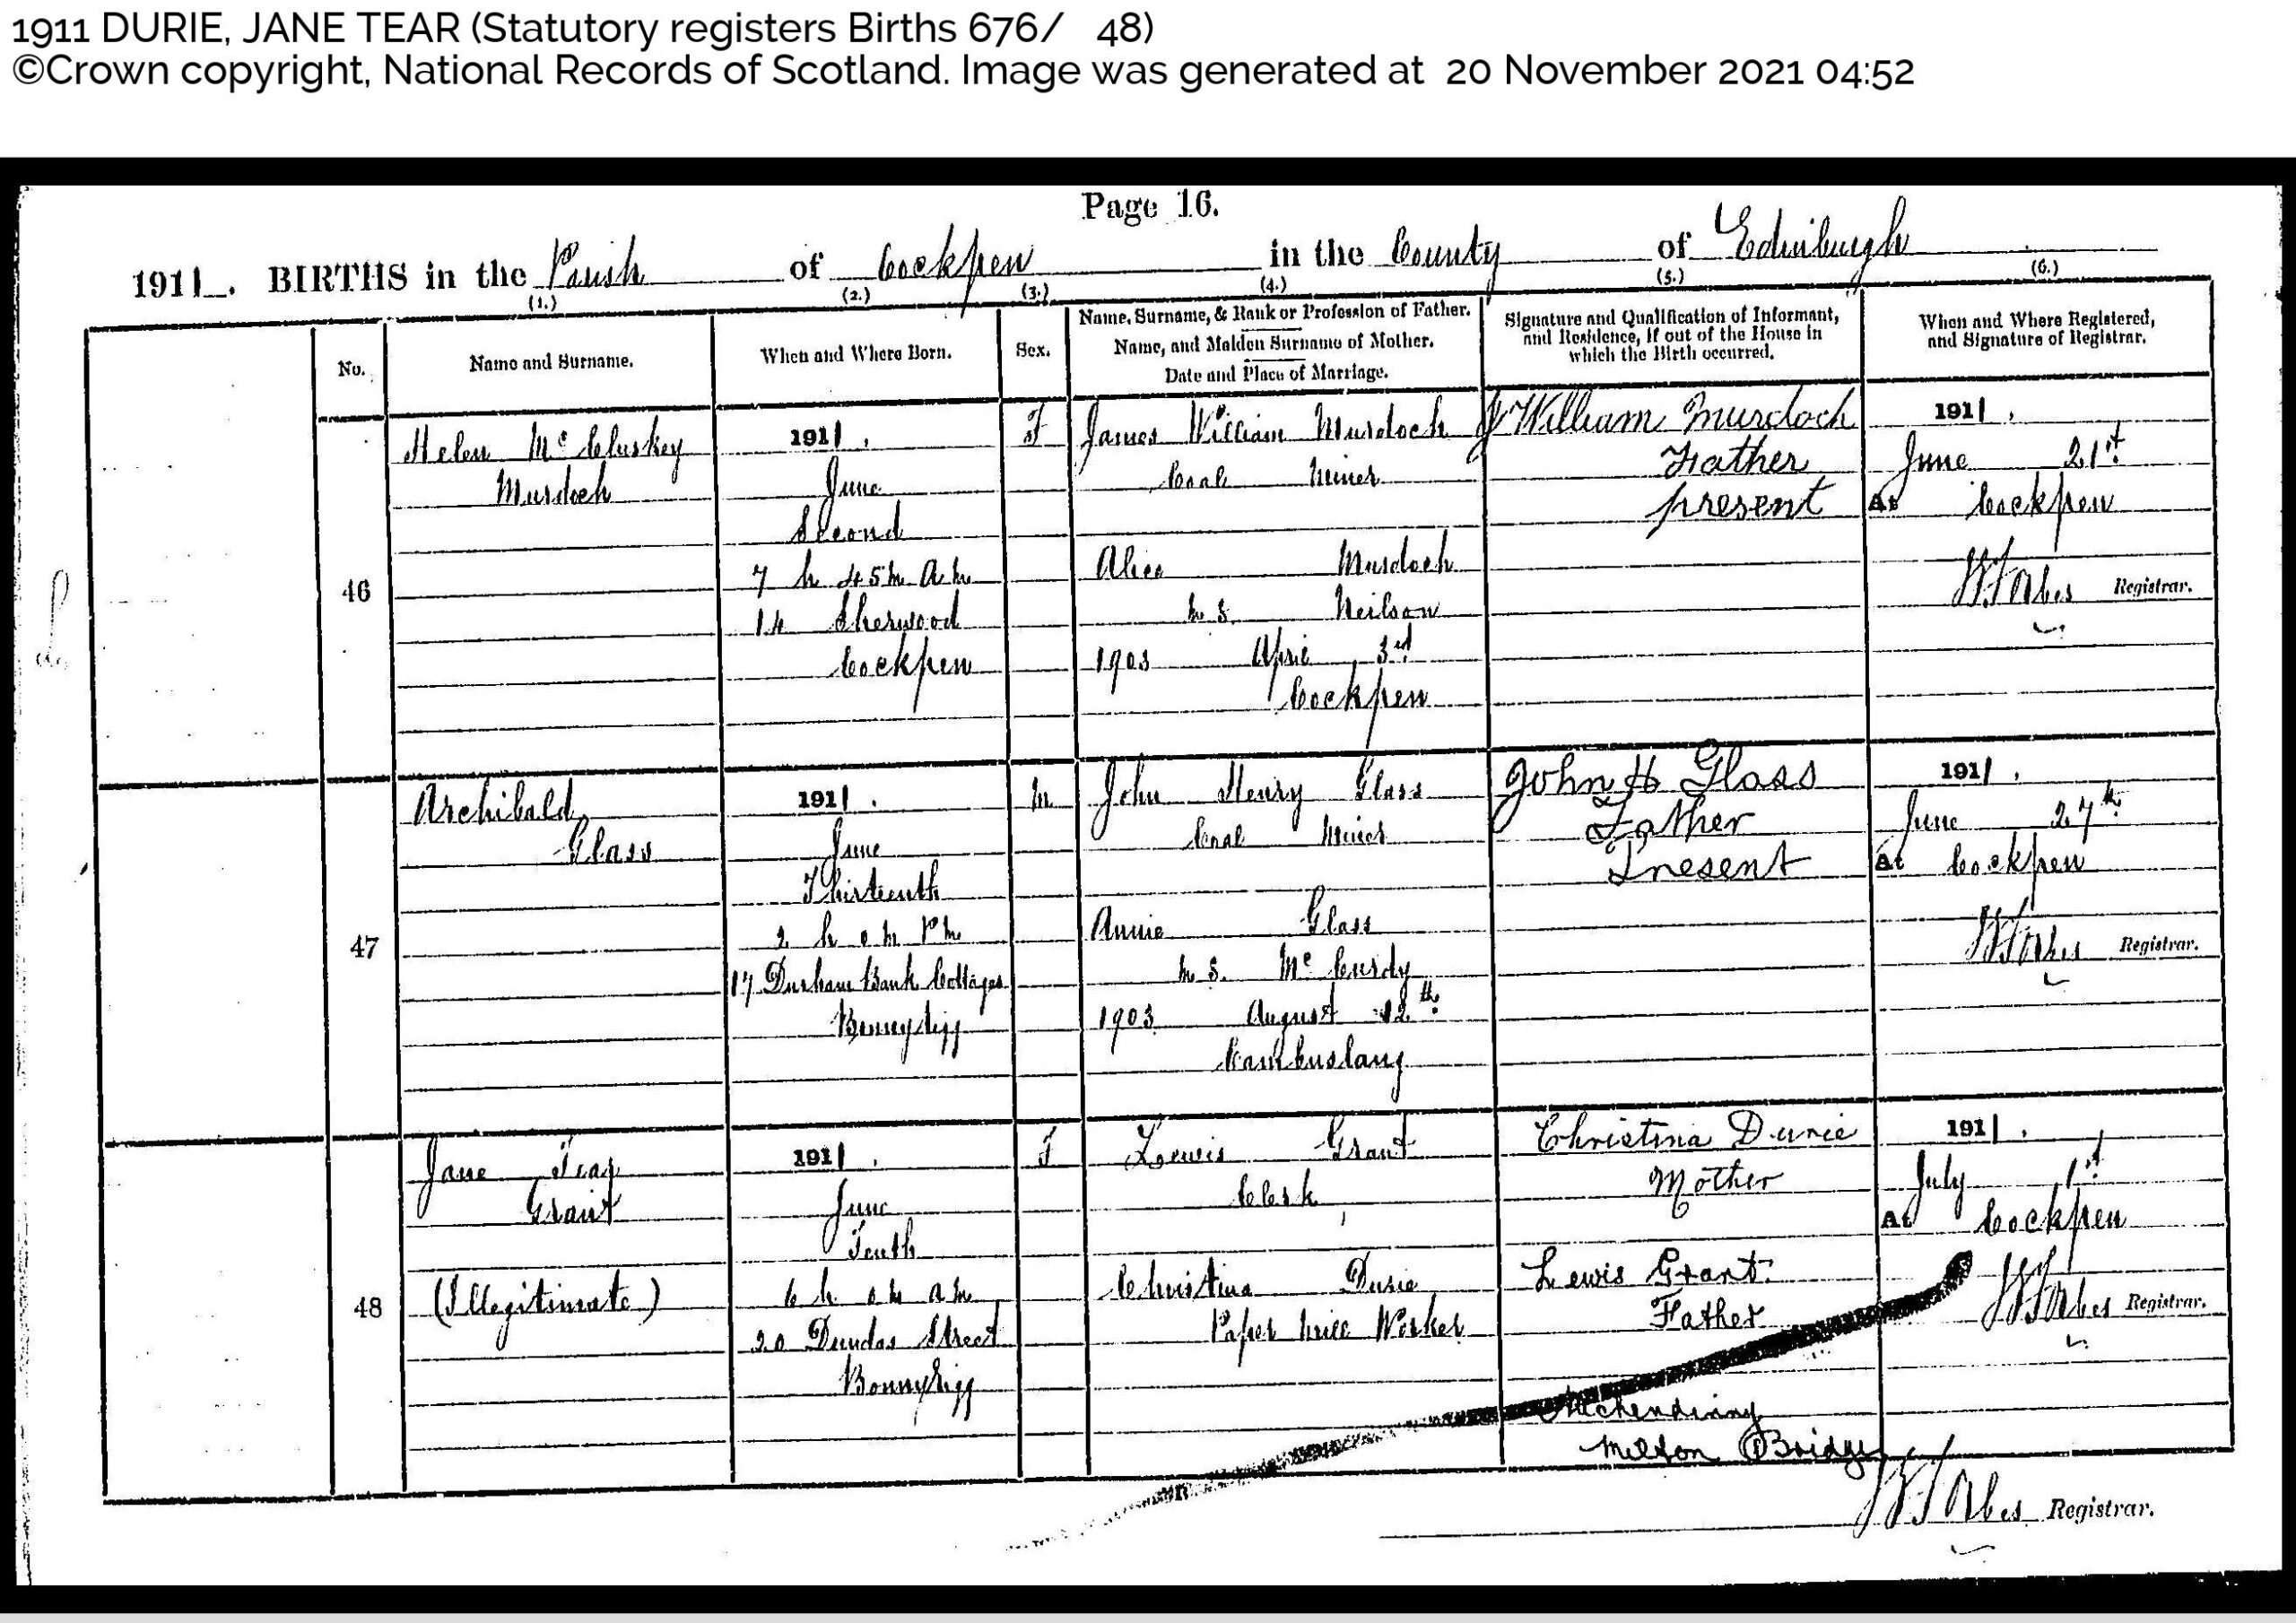 1911 DURIE, JANE TEAR (Statutory registers Births 676/ 48)
©Crown copyright, National Records of Scotland. Image was generated at 20 November 2021 04:52
Page 16.
1911. BIRTHS in the Parish of Cockpen in the County of Edinburgh
(1.) (2.) (3.) (4.) (5.) (6.)
No.
Name and Surname.
When and Where Born.
Sex.
Name, Surname, & Rank or Profession of Father.
Name, and Maiden Surname of Mother.
Date and Place of Marriage.
Signature and Qualification of Informant,
and Residence, if out of the House in
which the Birth occurred.
When and Where Registered,
and Signature of Registrar.
46
Helen McCluskey
Murdoch
1911.
June
Second
7 h 45 m A m
14 Sherwood
Cockpen
F
James William Murdoch
Coal Miner
Alice Murdoch
m. s. Neilson
1903 April 3rd
Cockpen
J William Murdoch
Father
present
1911.
June 21st
At Cockpen
Forbes Registrar.
47
Archibald
Glass
1911.
June
Thirteenth
2 h 0 m P m
17 Durham Bank Cottages
Bonnyrigg
M
John Henry Glass
Coal Miner
Annie Glass
m. s. McCurdy
1903 August 12th
Cambuslang
John H Glass
Father
Present
1911.
June 27th
At Cockpen
Forbes Registrar.
48
Jane Tear
Grant
(Illegitimate)
1911.
June
Tenth
6 h 0 m A m
20 Dundas Street
Bonnyrigg
F
Lewis Grant
Clerk
Christina Durie
Paper Mill Worker
Christina Durie
Mother
Lewis Grant.
Father
Auchendinny
Milton Bridge
1911.
July 1st
At Cockpen
Forbes Registrar.
Forbes Registrar.